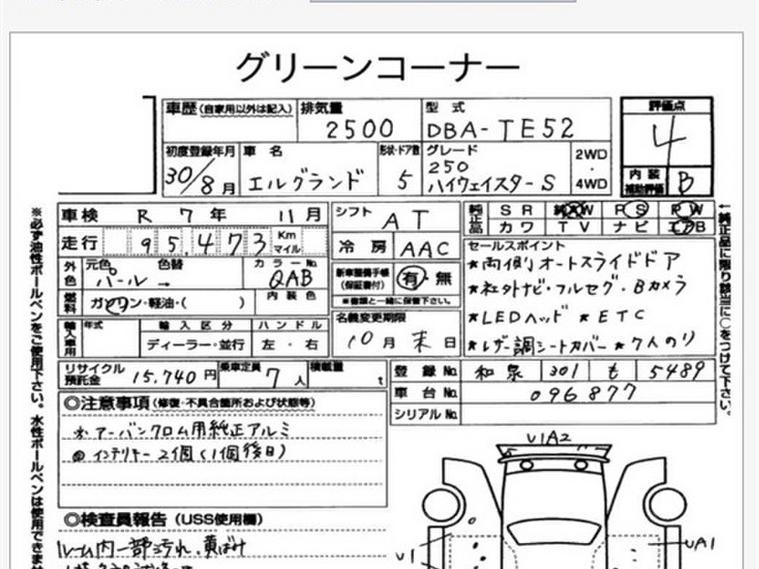 グリーンコーナー
車歴 (自家用以外は記入) 排気量 2500 型式 DBA-TE52 評価点 4
初度登録年月 30/8月 車名 エルグランド 形状・ドア数 5 グレード 250 ハイウェイスターS 2WD・4WD 内装補助評価 B
車検 R 7年 11月 シフト AT 純正品 SR AW PS PW
カワ TV ナビ エアB
走行 95,473 Km マイル 冷房 AAC セールスポイント
外色 元色 パール 色替 → カラーNo. QAB 新車整備手帳(保証書付) 有・無 ※書類と一緒に保管下さい。
★両側オートスライドドア
★社外ナビ・フルセグ・Bカメラ
★LEDヘッド ★ETC
★レザー調シートカバー ★7人のり
燃料 ガソリン・軽油・( ) 内装色 名義変更期限 10月末日
輸入車用 年式 輸入区分 ハンドル
ディーラー・並行 左・右
リサイクル預託金 15,740円 乗車定員 7人 積載量 t 登録No. 和泉 301 も 5489
車台No. 096877
シリアルNo.
◎注意事項 (修復・不具合箇所および状態等)
※アーバンクロム用純正アルミ
◎インテリキー2個(1個後日)
◎検査員報告 (USS使用欄)
ルーム内一部汚れ、黄ばみ
U1A2
U1
UA1
※必ず油性ボールペンをご使用下さい。水性ボールペンは使用できませ
←純正品に限り該当に○をつけて下さい。